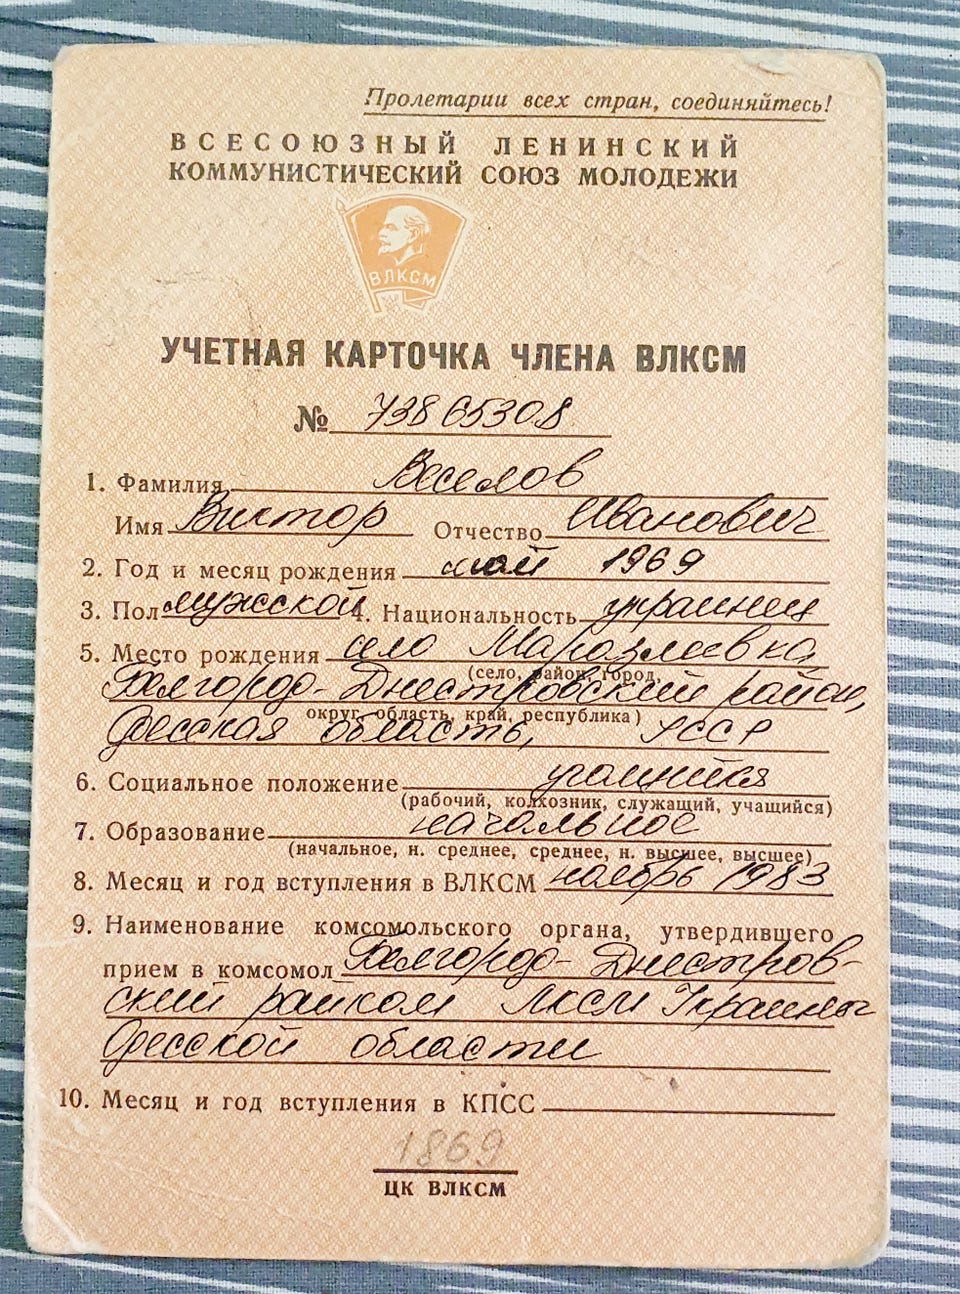 Пролетарии всех стран, соединяйтесь!
ВСЕСОЮЗНЫЙ ЛЕНИНСКИЙ
КОММУНИСТИЧЕСКИЙ СОЮЗ МОЛОДЕЖИ
ВЛКСМ
УЧЕТНАЯ КАРТОЧКА ЧЛЕНА ВЛКСМ
№ 73865308
1. Фамилия Веселов
Имя Виктор Отчество Иванович
2. Год и месяц рождения май 1969
3. Пол мужской 4. Национальность украинец
5. Место рождения село Маразлиевка,
(село, район, город,
Белгород-Днестровский район,
округ, область, край, республика)
Одесская область, УССР
6. Социальное положение учащийся
(рабочий, колхозник, служащий, учащийся)
7. Образование начальное
(начальное, н. среднее, среднее, н. высшее, высшее)
8. Месяц и год вступления в ВЛКСМ ноябрь 1983
9. Наименование комсомольского органа, утвердившего
прием в комсомол Белгород-Днестров-
ский райком ЛКСМ Украины
Одесской области
10. Месяц и год вступления в КПСС
1869
ЦК ВЛКСМ